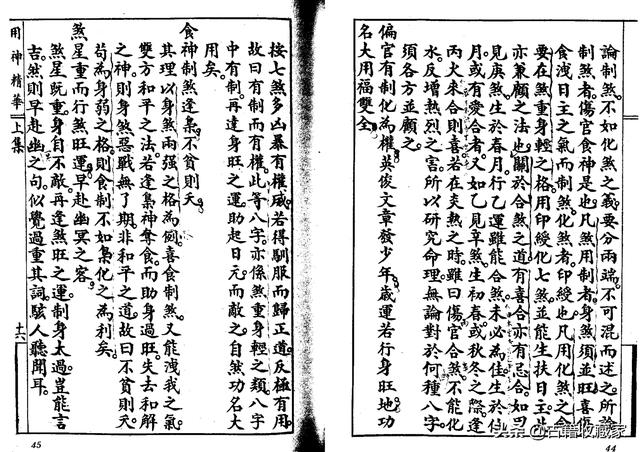 論制煞不如化煞之義要分兩端不可混而述之所論
制煞者傷官食神是也凡煞用制者身煞須並旺喜傷
食洩日主之氣而制煞化煞者印綬也凡用化煞之命
要在煞重身輕之格用印綬化七煞並能生扶日主此
亦兼顧之法也關於合煞之道有喜合亦有忌合如甲
見庚煞生於春月行乙運雖能合煞未必為佳生於仲
月或有愛合者又如乙見辛煞生初春或秋冬之際逢
丙火來合則喜若在炎熱之時雖曰傷官合煞不能化
水反增熱烈之害所以研究命理無論對於何種八字
須各方並顧之
偏官有制化為權英俊文章發少年歲運若行身旺地功
名大用福雙全
44
按七煞多凶暴有權威若得馴服而歸正道反極有用
故曰有制而有權此等八字亦係煞重身輕之類八字
中有制再逢身旺之運助起日元而敵之自然功名大
用矣
食神制煞逢梟不貧則夭
其理以身煞兩強之格為例喜食制煞又能洩我之氣
雙方和平之法若逢梟神奪食而助身過旺失去和解
之神則身煞惡戰無了期非和平之道故曰不貧則夭
苟為身弱之格則食制不如梟化之為利矣
煞星重而行煞旺運早赴幽冥之客
煞星既重身自不敵再逢煞旺之運制身太過豈能言
吉然則早赴幽之句似覺過重其詞駭人聽聞耳
用神精華 上集
十六
45
头条@古籍收藏家